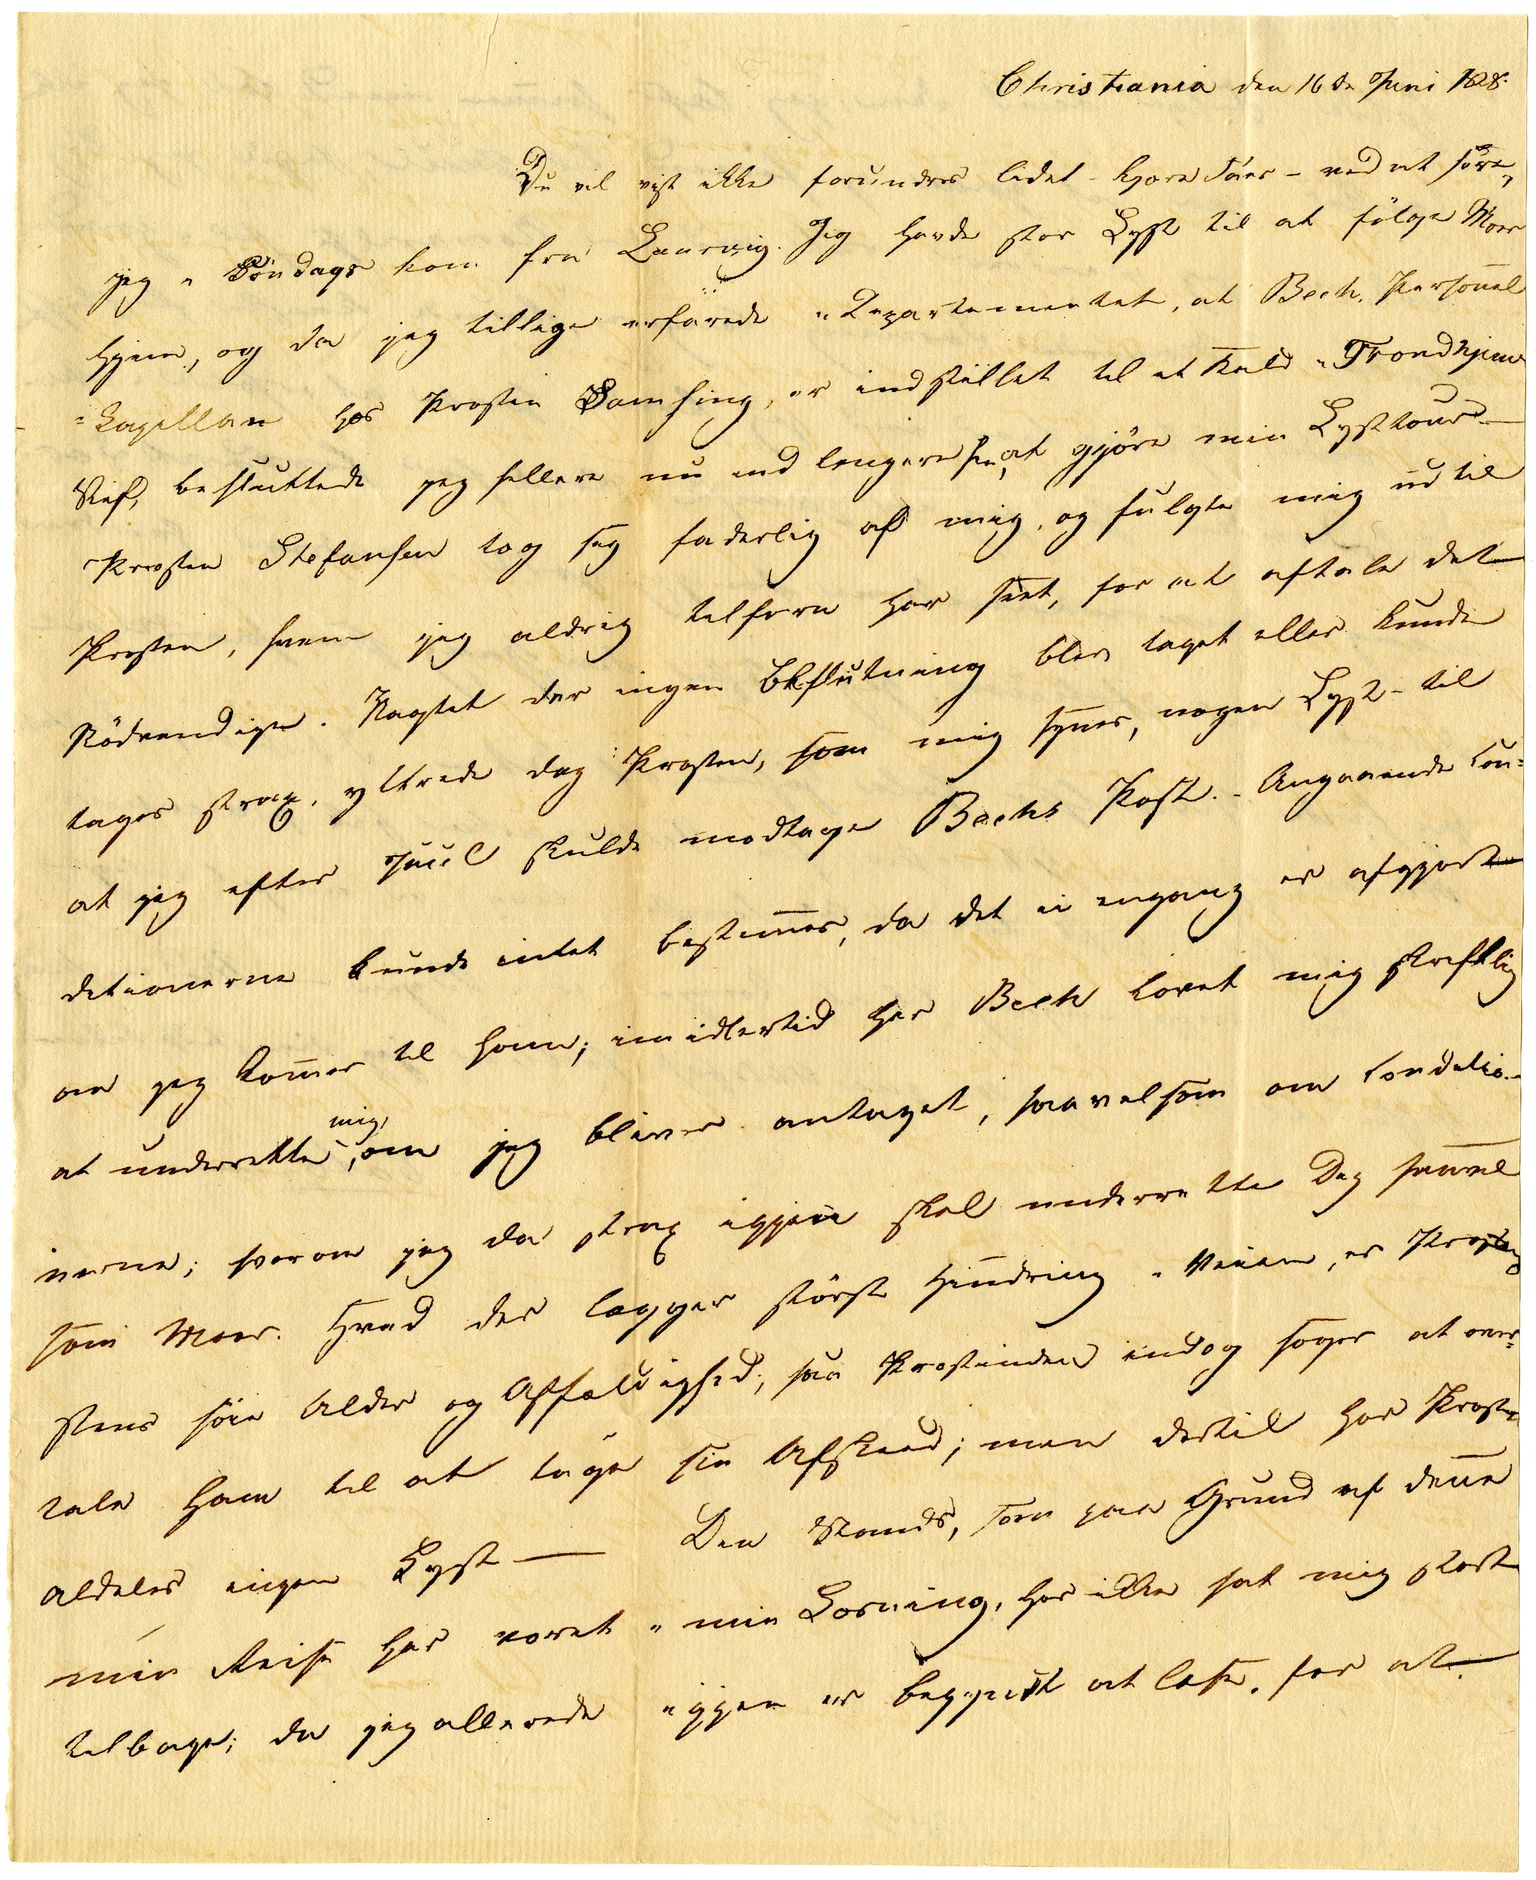 Christiania den 16de Juni 1828.
Du vil vist ikke forundres lidet - kjære Faer - ved at høre,
jeg i Søndags kom fra Laurvig. Jeg havde stor Lyst til at følge Moer
hjem, og da jeg tillige erfarede i Departementet, at Bech, Personel
=Capellan hos Prosten Samsing, er indstillet til et Kald i Trondhjems
Stift, besluttede jeg hellere nu end lengere hen, at gjöre min Lysttour.
Provsten Stefansen tog sig faderlig af mig, og fulgte mig ud til
Prosten, hvem jeg aldrig tilforn har seet, for at aftale det
Nödvendige. Uagtet der ingen Beslutning blev taget eller kunde
tages strax, yttrede dog Prosten, som mig synes, nogen Lyst til
at jeg efter Juul skulde modtage Bechs Post. - Angaaende Con=
ditionerne kunde intet bestemmes, da det ei engang er afgjort
om jeg kommer til ham; imidlertid har Bech lovet mig skriftlig
at underrette mig, om jeg bliver antaget, saavelsom om Conditio-
nerne; hvorom jeg da strax igjen skal underrette Dig saavel
som Moer. Hvad der lægger störst Hindring i Veien, er Prov-
stens höie Alder og Affældighed, saa Prostinden endog søger at over=
tale ham til at tage sin Afskeed; men dertil har Prosten
aldeles ingen Lyst — Den Stands, som paa Grund af denne
min Reise har været i min Læsning, har ikke sat mig stort
tilbage; da jeg allerede igjen er begyndt at læse, for at